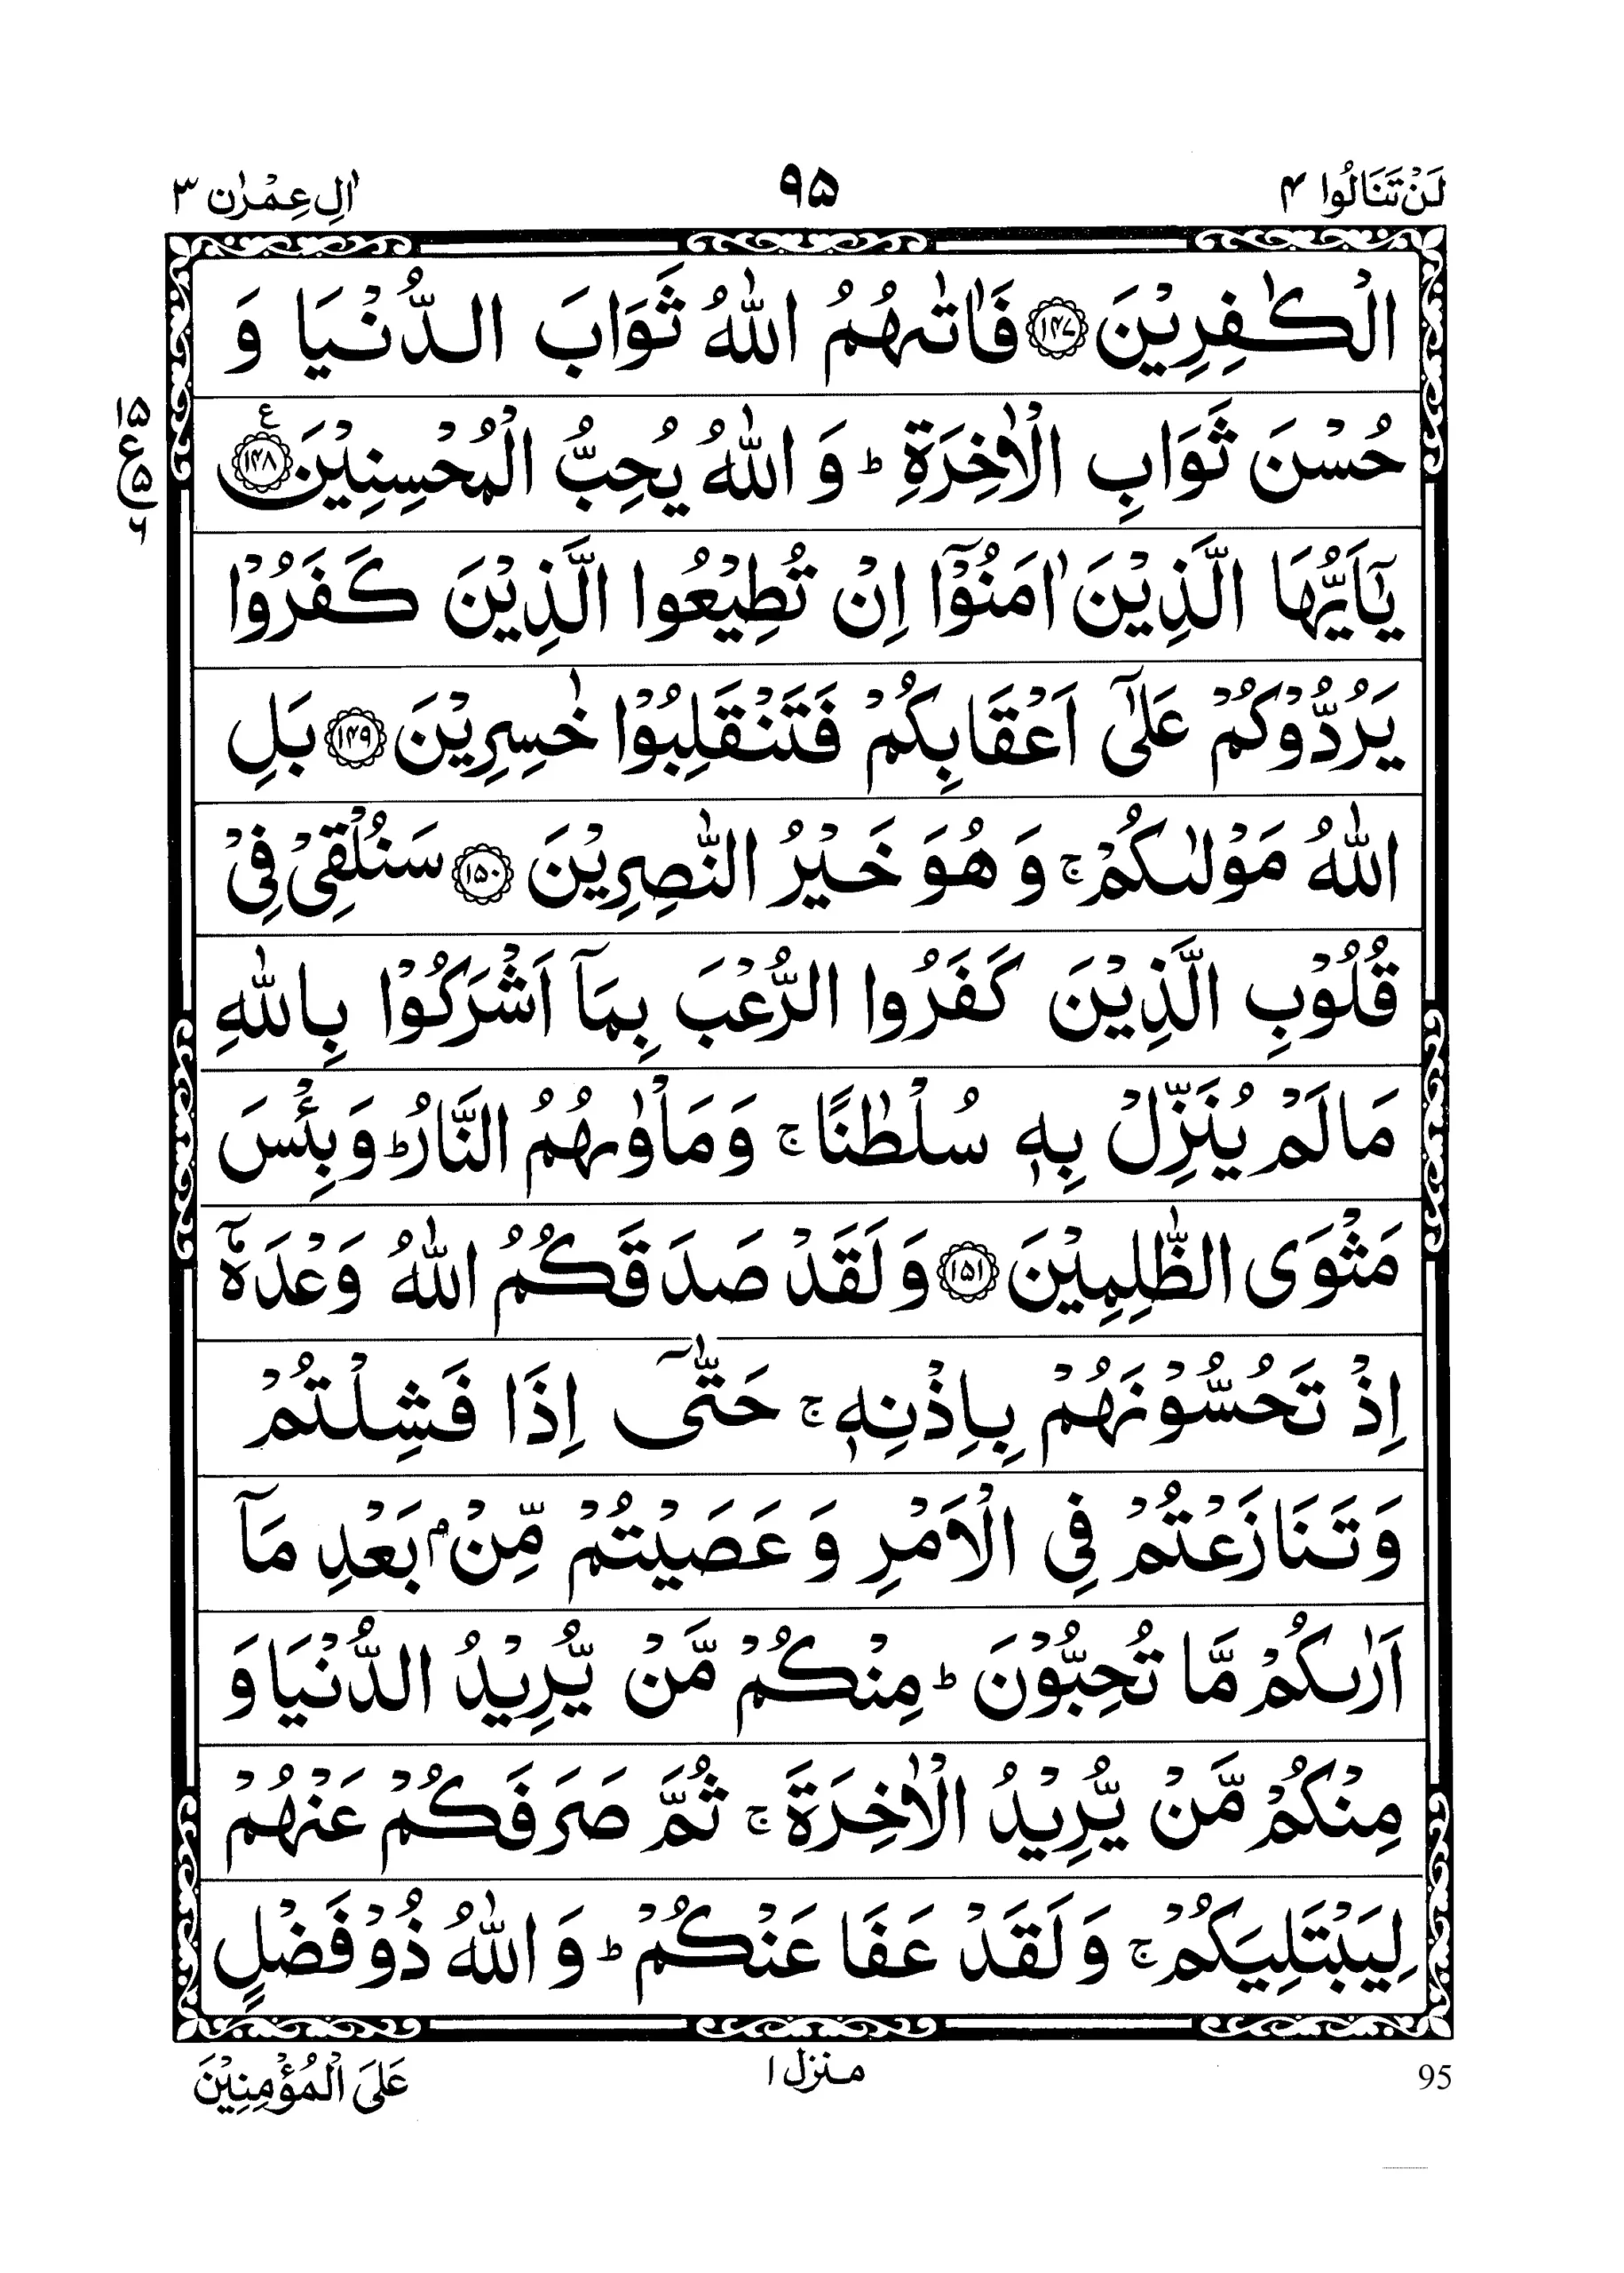 لَنْ تَنَالُوا ۴ ۹۵ اٰلِ عِمْرٰن ۳
الْكٰفِرِيْنَ ۝۱۴۷ فَاٰتٰىهُمُ اللّٰهُ ثَوَابَ الدُّنْيَا وَ
حُسْنَ ثَوَابِ الْاٰخِرَةِ ؕ وَ اللّٰهُ يُحِبُّ الْمُحْسِنِيْنَ ۝۱۴۸ ع
۱۵
ع ۵
۶
يٰۤاَيُّهَا الَّذِيْنَ اٰمَنُوْۤا اِنْ تُطِيْعُوا الَّذِيْنَ كَفَرُوْا
يَرُدُّوْكُمْ عَلٰۤى اَعْقَابِكُمْ فَتَنْقَلِبُوْا خٰسِرِيْنَ ۝۱۴۹ بَلِ
اللّٰهُ مَوْلٰىكُمْ ۚ وَ هُوَ خَيْرُ النّٰصِرِيْنَ ۝۱۵۰ سَنُلْقِيْ فِيْ
قُلُوْبِ الَّذِيْنَ كَفَرُوا الرُّعْبَ بِمَاۤ اَشْرَكُوْا بِاللّٰهِ
مَا لَمْ يُنَزِّلْ بِهٖ سُلْطٰنًا ۚ وَ مَاْوٰىهُمُ النَّارُ ؕ وَ بِئْسَ
مَثْوَى الظّٰلِمِيْنَ ۝۱۵۱ وَ لَقَدْ صَدَقَكُمُ اللّٰهُ وَعْدَهٗۤ
اِذْ تَحُسُّوْنَهُمْ بِاِذْنِهٖ ۚ حَتّٰۤى اِذَا فَشِلْتُمْ
وَ تَنَازَعْتُمْ فِي الْاَمْرِ وَ عَصَيْتُمْ مِّنْۢ بَعْدِ مَاۤ
اَرٰىكُمْ مَّا تُحِبُّوْنَ ؕ مِنْكُمْ مَّنْ يُّرِيْدُ الدُّنْيَا وَ
مِنْكُمْ مَّنْ يُّرِيْدُ الْاٰخِرَةَ ۚ ثُمَّ صَرَفَكُمْ عَنْهُمْ
لِيَبْتَلِيَكُمْ ۚ وَ لَقَدْ عَفَا عَنْكُمْ ؕ وَ اللّٰهُ ذُوْ فَضْلٍ
95 منزل ۱ عَلَى الْمُؤْمِنِيْنَ